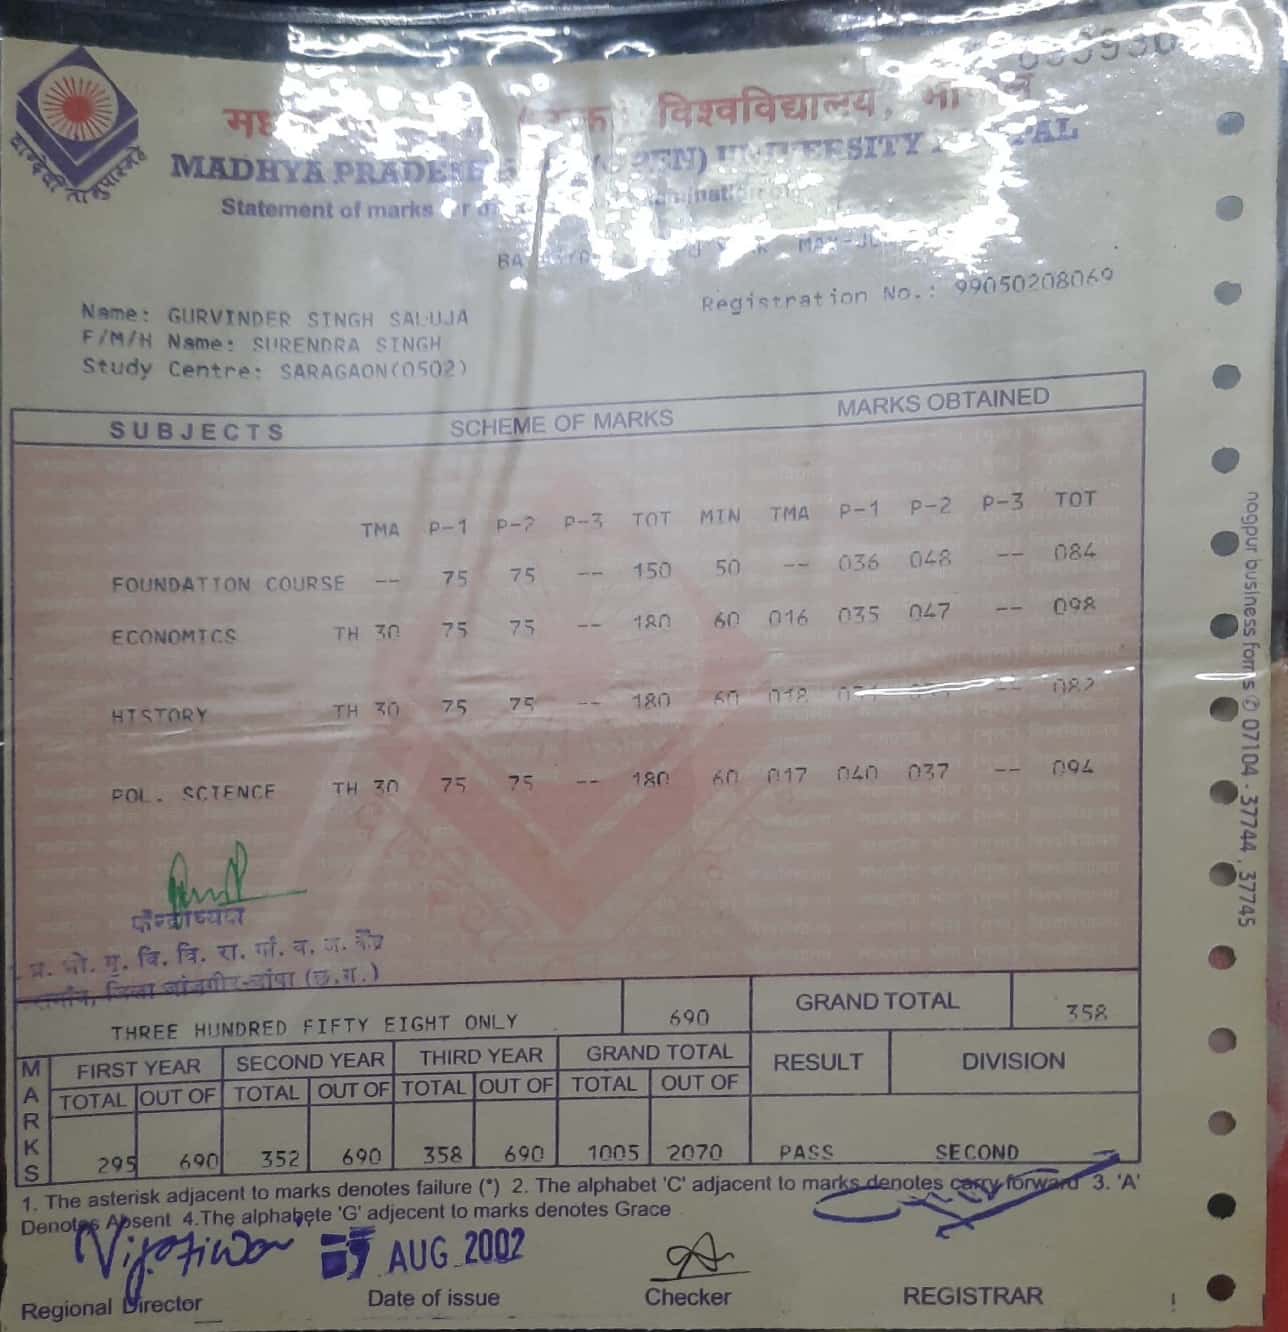 विश्वविद्यालय,
MADHYA PRADESH (OPEN) UNIVERSITY
Statement of marks
BA
Name: GURVINDER SINGH SALUJA
Registration No.: 99050208069
F/M/H Name: SURENDRA SINGH
Study Centre: SARAGAON(0502)
SUBJECTS SCHEME OF MARKS MARKS OBTAINED
TMA P-1 P-2 P-3 TOT MIN TMA P-1 P-2 P-3 TOT
FOUNDATION COURSE -- 75 75 -- 150 50 -- 036 048 -- 084
ECONOMICS TH 30 75 75 -- 180 60 016 035 047 -- 098
HISTORY TH 30 75 75 -- 180 60 018 -- 082
POL. SCIENCE TH 30 75 75 -- 180 60 017 040 037 -- 094
THREE HUNDRED FIFTY EIGHT ONLY 690 GRAND TOTAL 358
MARKS
FIRST YEAR SECOND YEAR THIRD YEAR GRAND TOTAL RESULT DIVISION
TOTAL OUT OF TOTAL OUT OF TOTAL OUT OF TOTAL OUT OF
295 690 352 690 358 690 1005 2070 PASS SECOND
1. The asterisk adjacent to marks denotes failure (*) 2. The alphabet 'C' adjacent to marks denotes carry forward 3. 'A'
Denotes Absent 4.The alphabete 'G' adjecent to marks denotes Grace
AUG 2002
Regional Director Date of issue Checker REGISTRAR
nagpur business forms ✆ 07104 - 37744, 37745